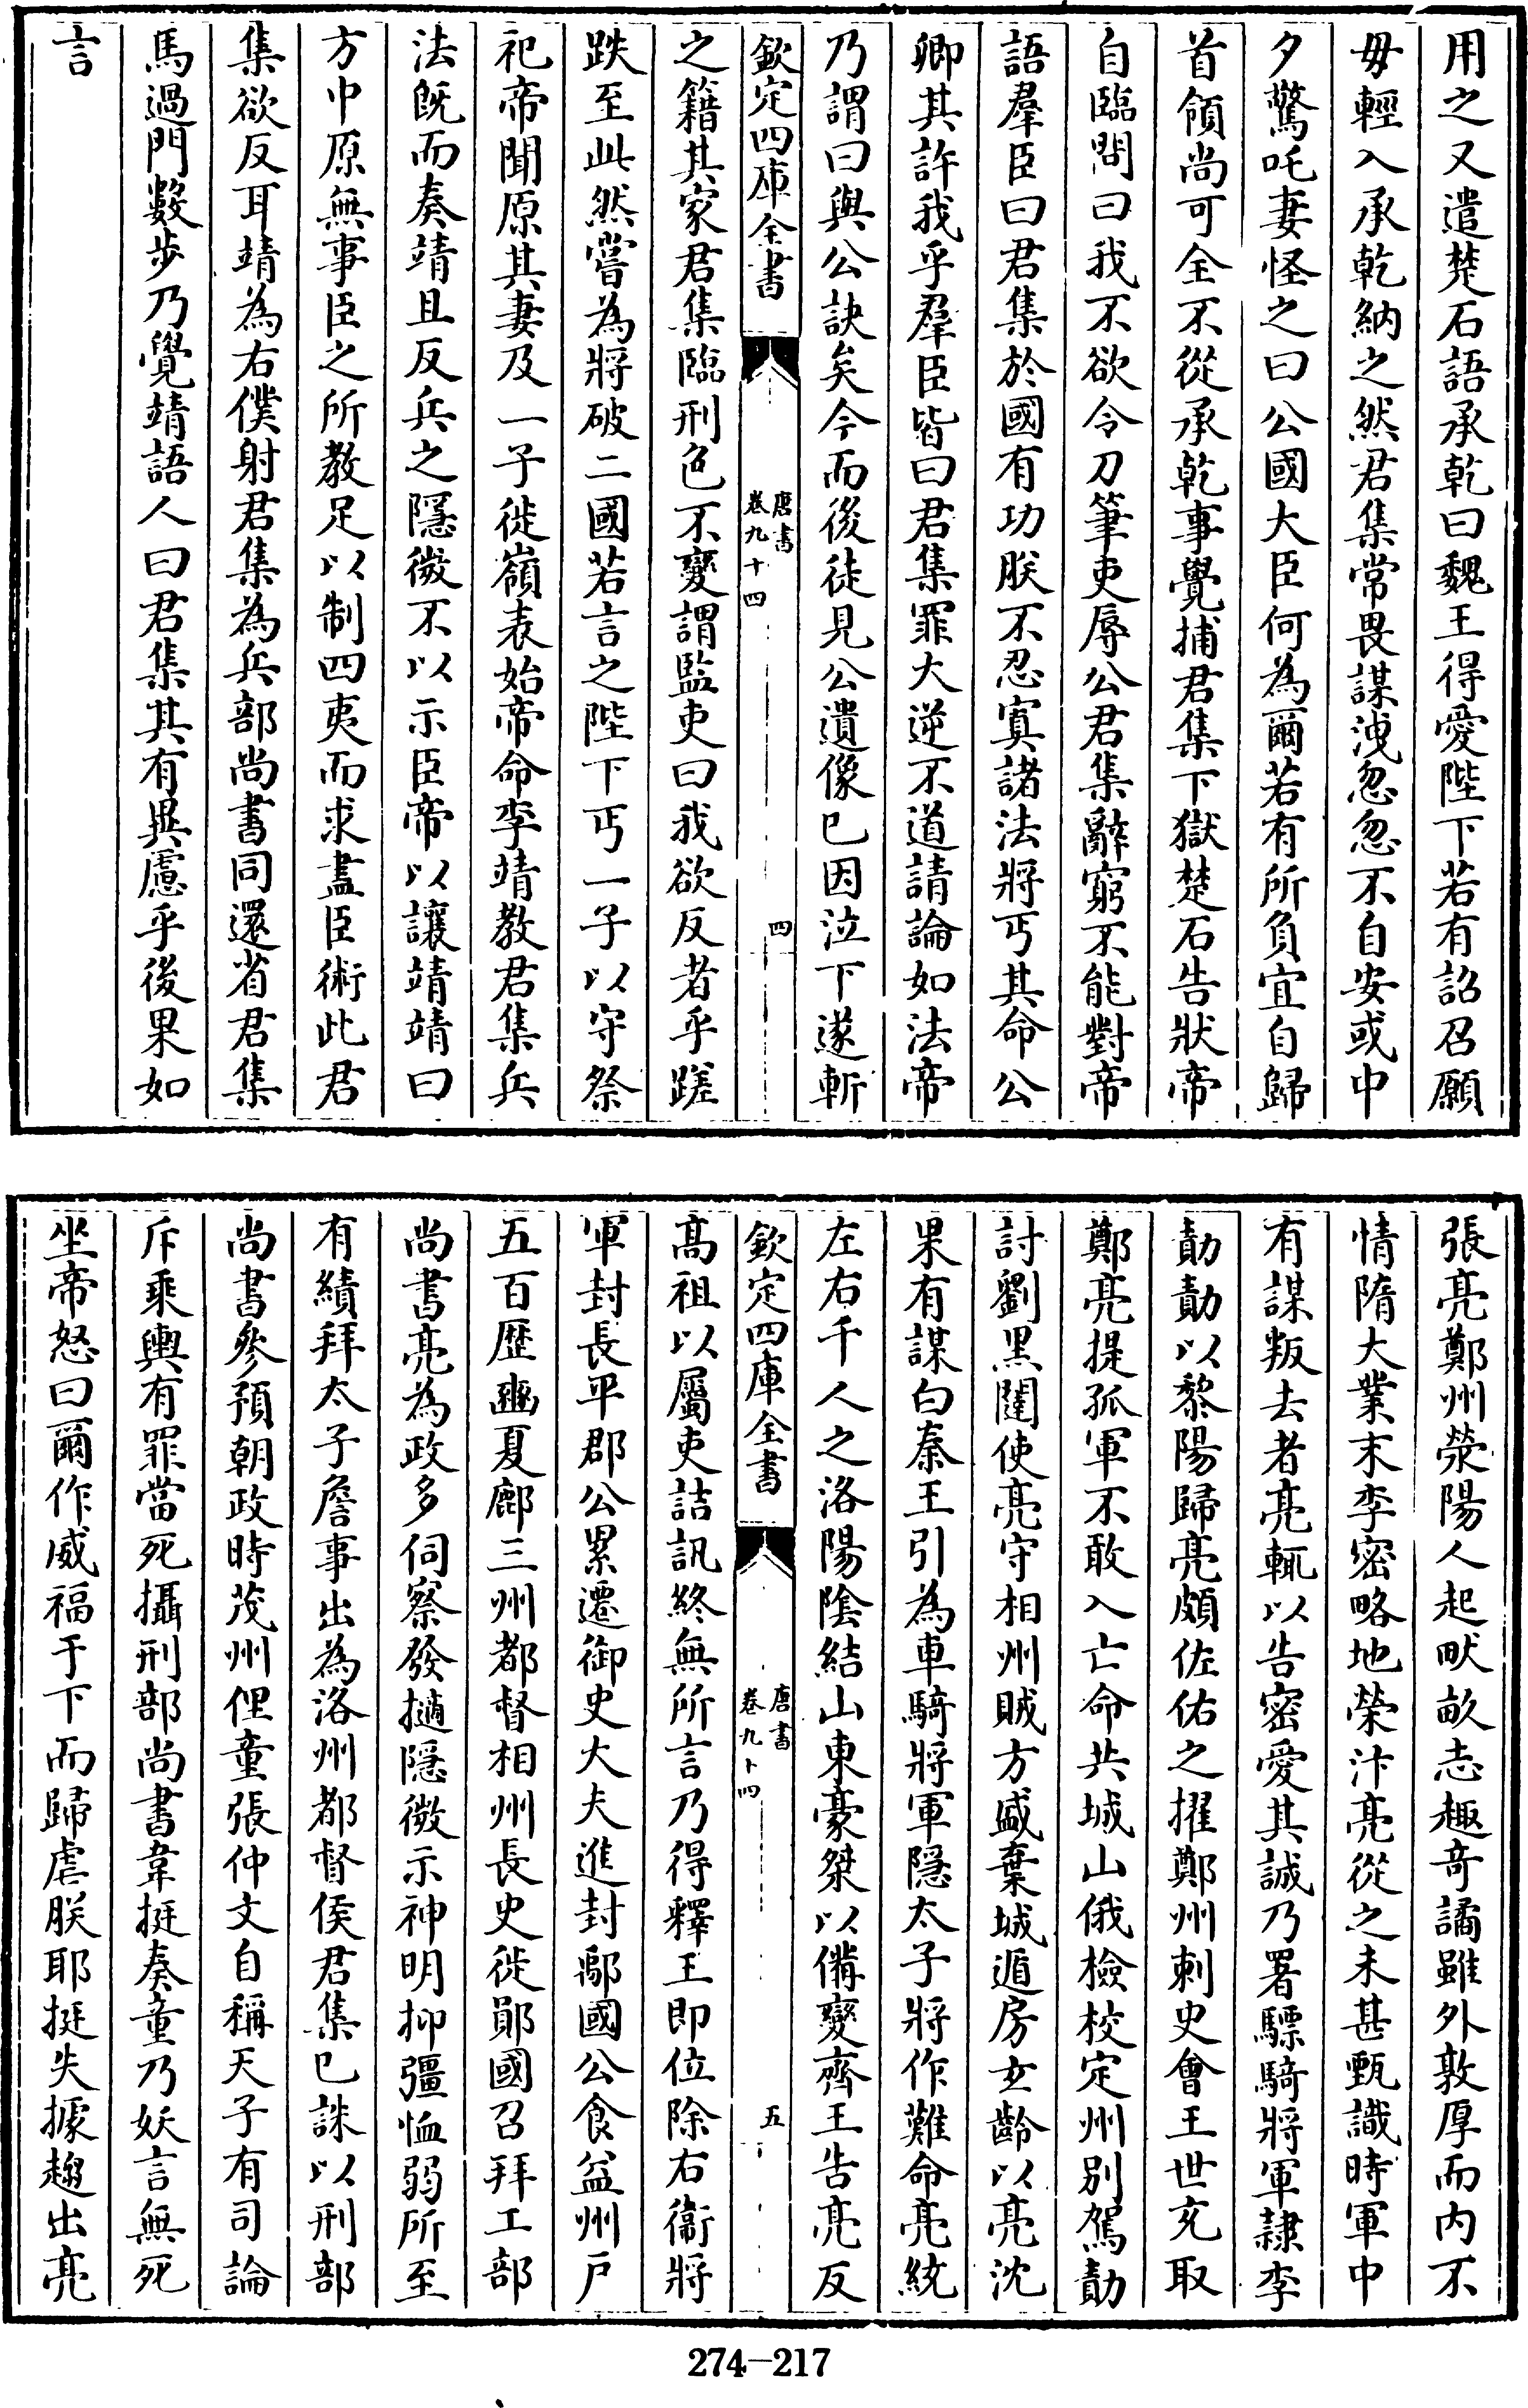 用之又遣楚石語承乾曰魏王得愛陛下若有詔召願
毋輕入承乾納之然君集常畏謀洩忽忽不自安或中
夕驚吒妻怪之曰公國大臣何為爾若有所負宜自歸
首領尚可全不從承乾事覺捕君集下獄楚石告狀帝
自臨問曰我不欲令刀筆吏辱公君集辭窮不能對帝
語羣臣曰君集於國有功朕不忍寘諸法將丐其命公
卿其許我乎羣臣皆曰君集罪大逆不道請論如法帝
乃謂曰與公訣矣今而後徒見公遺像已因泣下遂斬
欽定四庫全書
唐書
卷九十四
四
之籍其家君集臨刑色不變謂監吏曰我欲反者乎蹉
跌至此然嘗為將破二國若言之陛下丐一子以守祭
祀帝聞原其妻及一子徙嶺表始帝命李靖教君集兵
法既而奏靖且反兵之隱微不以示臣帝以讓靖靖曰
方中原無事臣之所教足以制四夷而求盡臣術此君
集欲反耳靖為右僕射君集為兵部尚書同還省君集
馬過門數步乃覺靖語人曰君集其有異慮乎後果如
言
張亮鄭州滎陽人起畎畝志趣奇譎雖外敦厚而内不
情隋大業末李密略地滎汴亮從之未甚甄識時軍中
有謀叛去者亮輒以告密愛其誠乃署驃騎將軍隷李
勣勣以黎陽歸亮頗佐佑之擢鄭州刺史會王世充取
鄭亮提孤軍不敢入亡命共城山俄檢校定州别駕勣
討劉黑闥使亮守相州賊方盛棄城遁房玄齡以亮沈
果有謀白秦王引為車騎將軍隱太子將作難命亮統
左右千人之洛陽隂結山東豪桀以備變齊王告亮反
欽定四庫全書
唐書
卷九十四
五
髙祖以屬吏詰訊終無所言乃得釋王即位除右衞將
軍封長平郡公累遷御史大夫進封鄅國公食益州戸
五百歴豳夏鄜三州都督相州長史徙鄖國召拜工部
尚書亮為政多伺察發擿隱微示神明抑彊恤弱所至
有績拜太子詹事出為洛州都督侯君集已誅以刑部
尚書參預朝政時茂州俚童張仲文自稱天子有司論
斥乘輿有罪當死攝刑部尚書韋挺奏童乃妖言無死
坐帝怒曰爾作威福于下而歸虐朕耶挺失據趨出亮
274-217